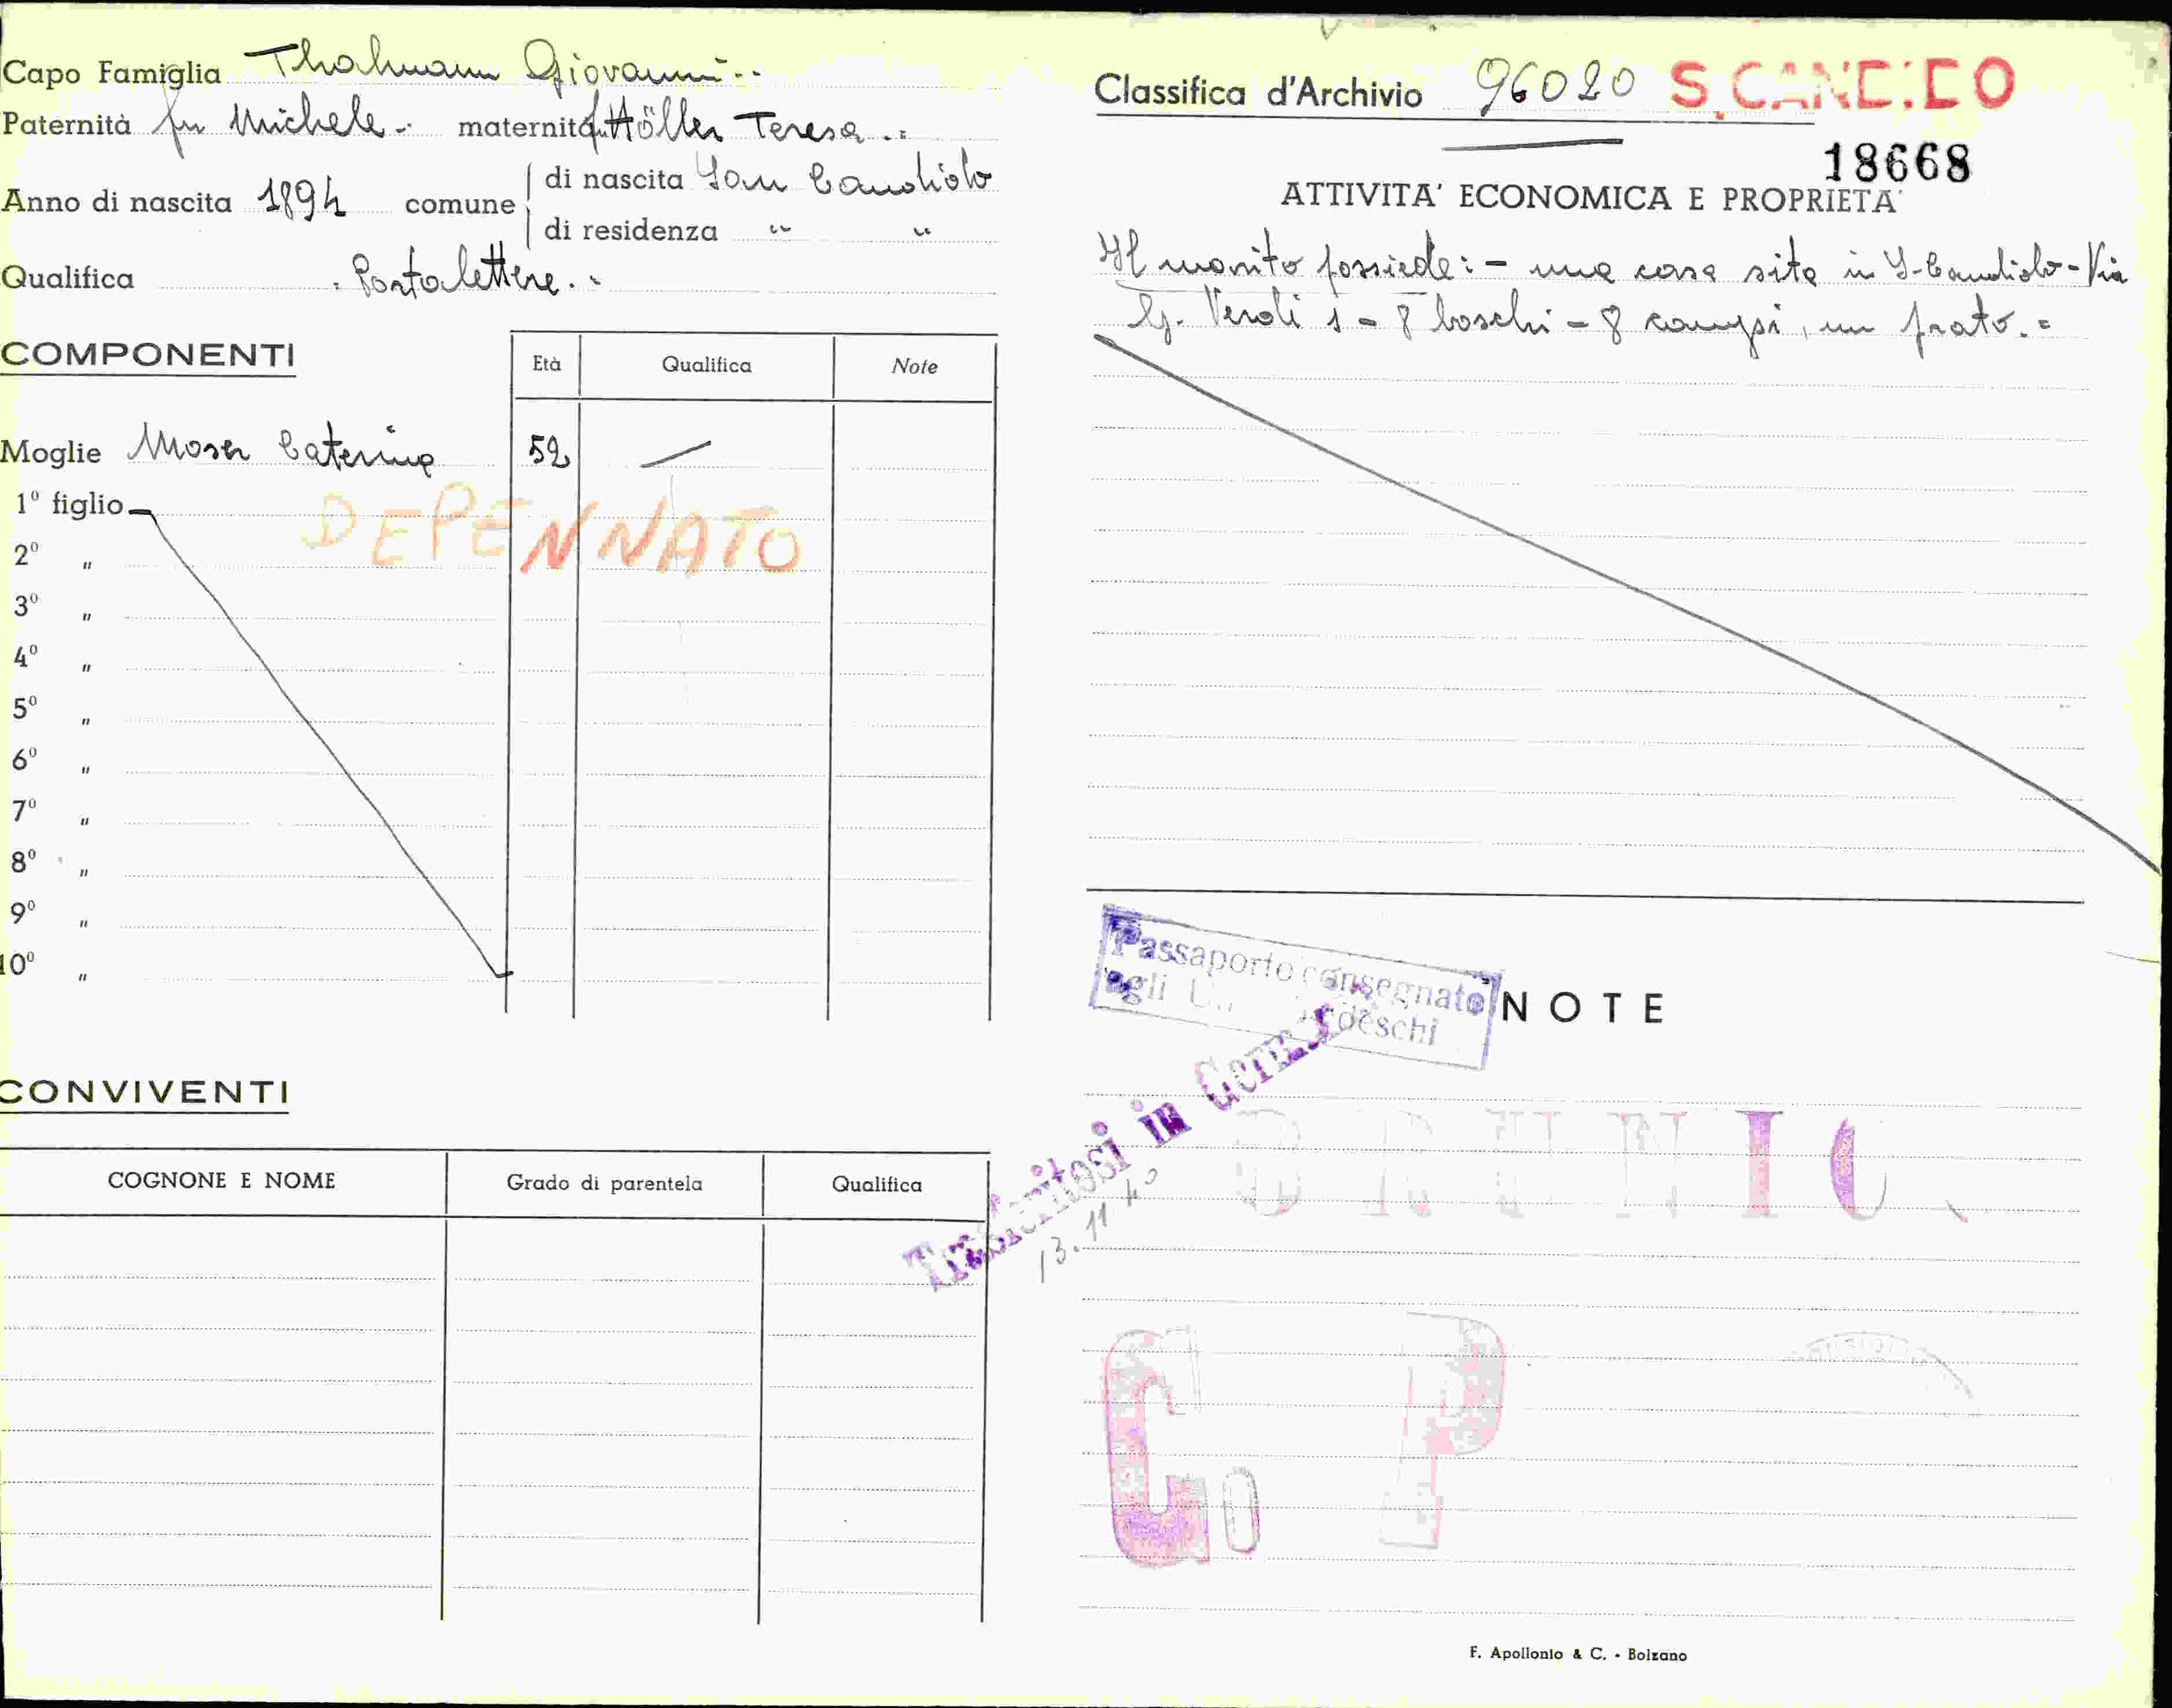 Capo Famiglia Thalmann Giovanni..
Paternità fu Michele.. maternità fu Höller Teresa..=
Anno di nascita 1894 comune di nascita San Candido
di residenza " "
Qualifica . Portalettere..
COMPONENTI
Età Qualifica Note
Moglie Moser Caterina 52
1º figlio
DEPENNATO
2º "
3º "
4º "
5º "
6º "
7º "
8º "
9º "
10º "
CONVIVENTI
COGNONE E NOME Grado di parentela Qualifica
Classifica d'Archivio 96020 S. CANDIDO
18668
ATTIVITA' ECONOMICA E PROPRIETA'
Il marito possiede: - una casa sita in S. Candido - Via
G. Verdi 1 - 8 boschi - 8 campi, un prato. =
Passaporto consegnato
agli tedeschi
NOTE
Trasferitosi in
13.11.40
G P
F. Apollonio & C. - Bolzano